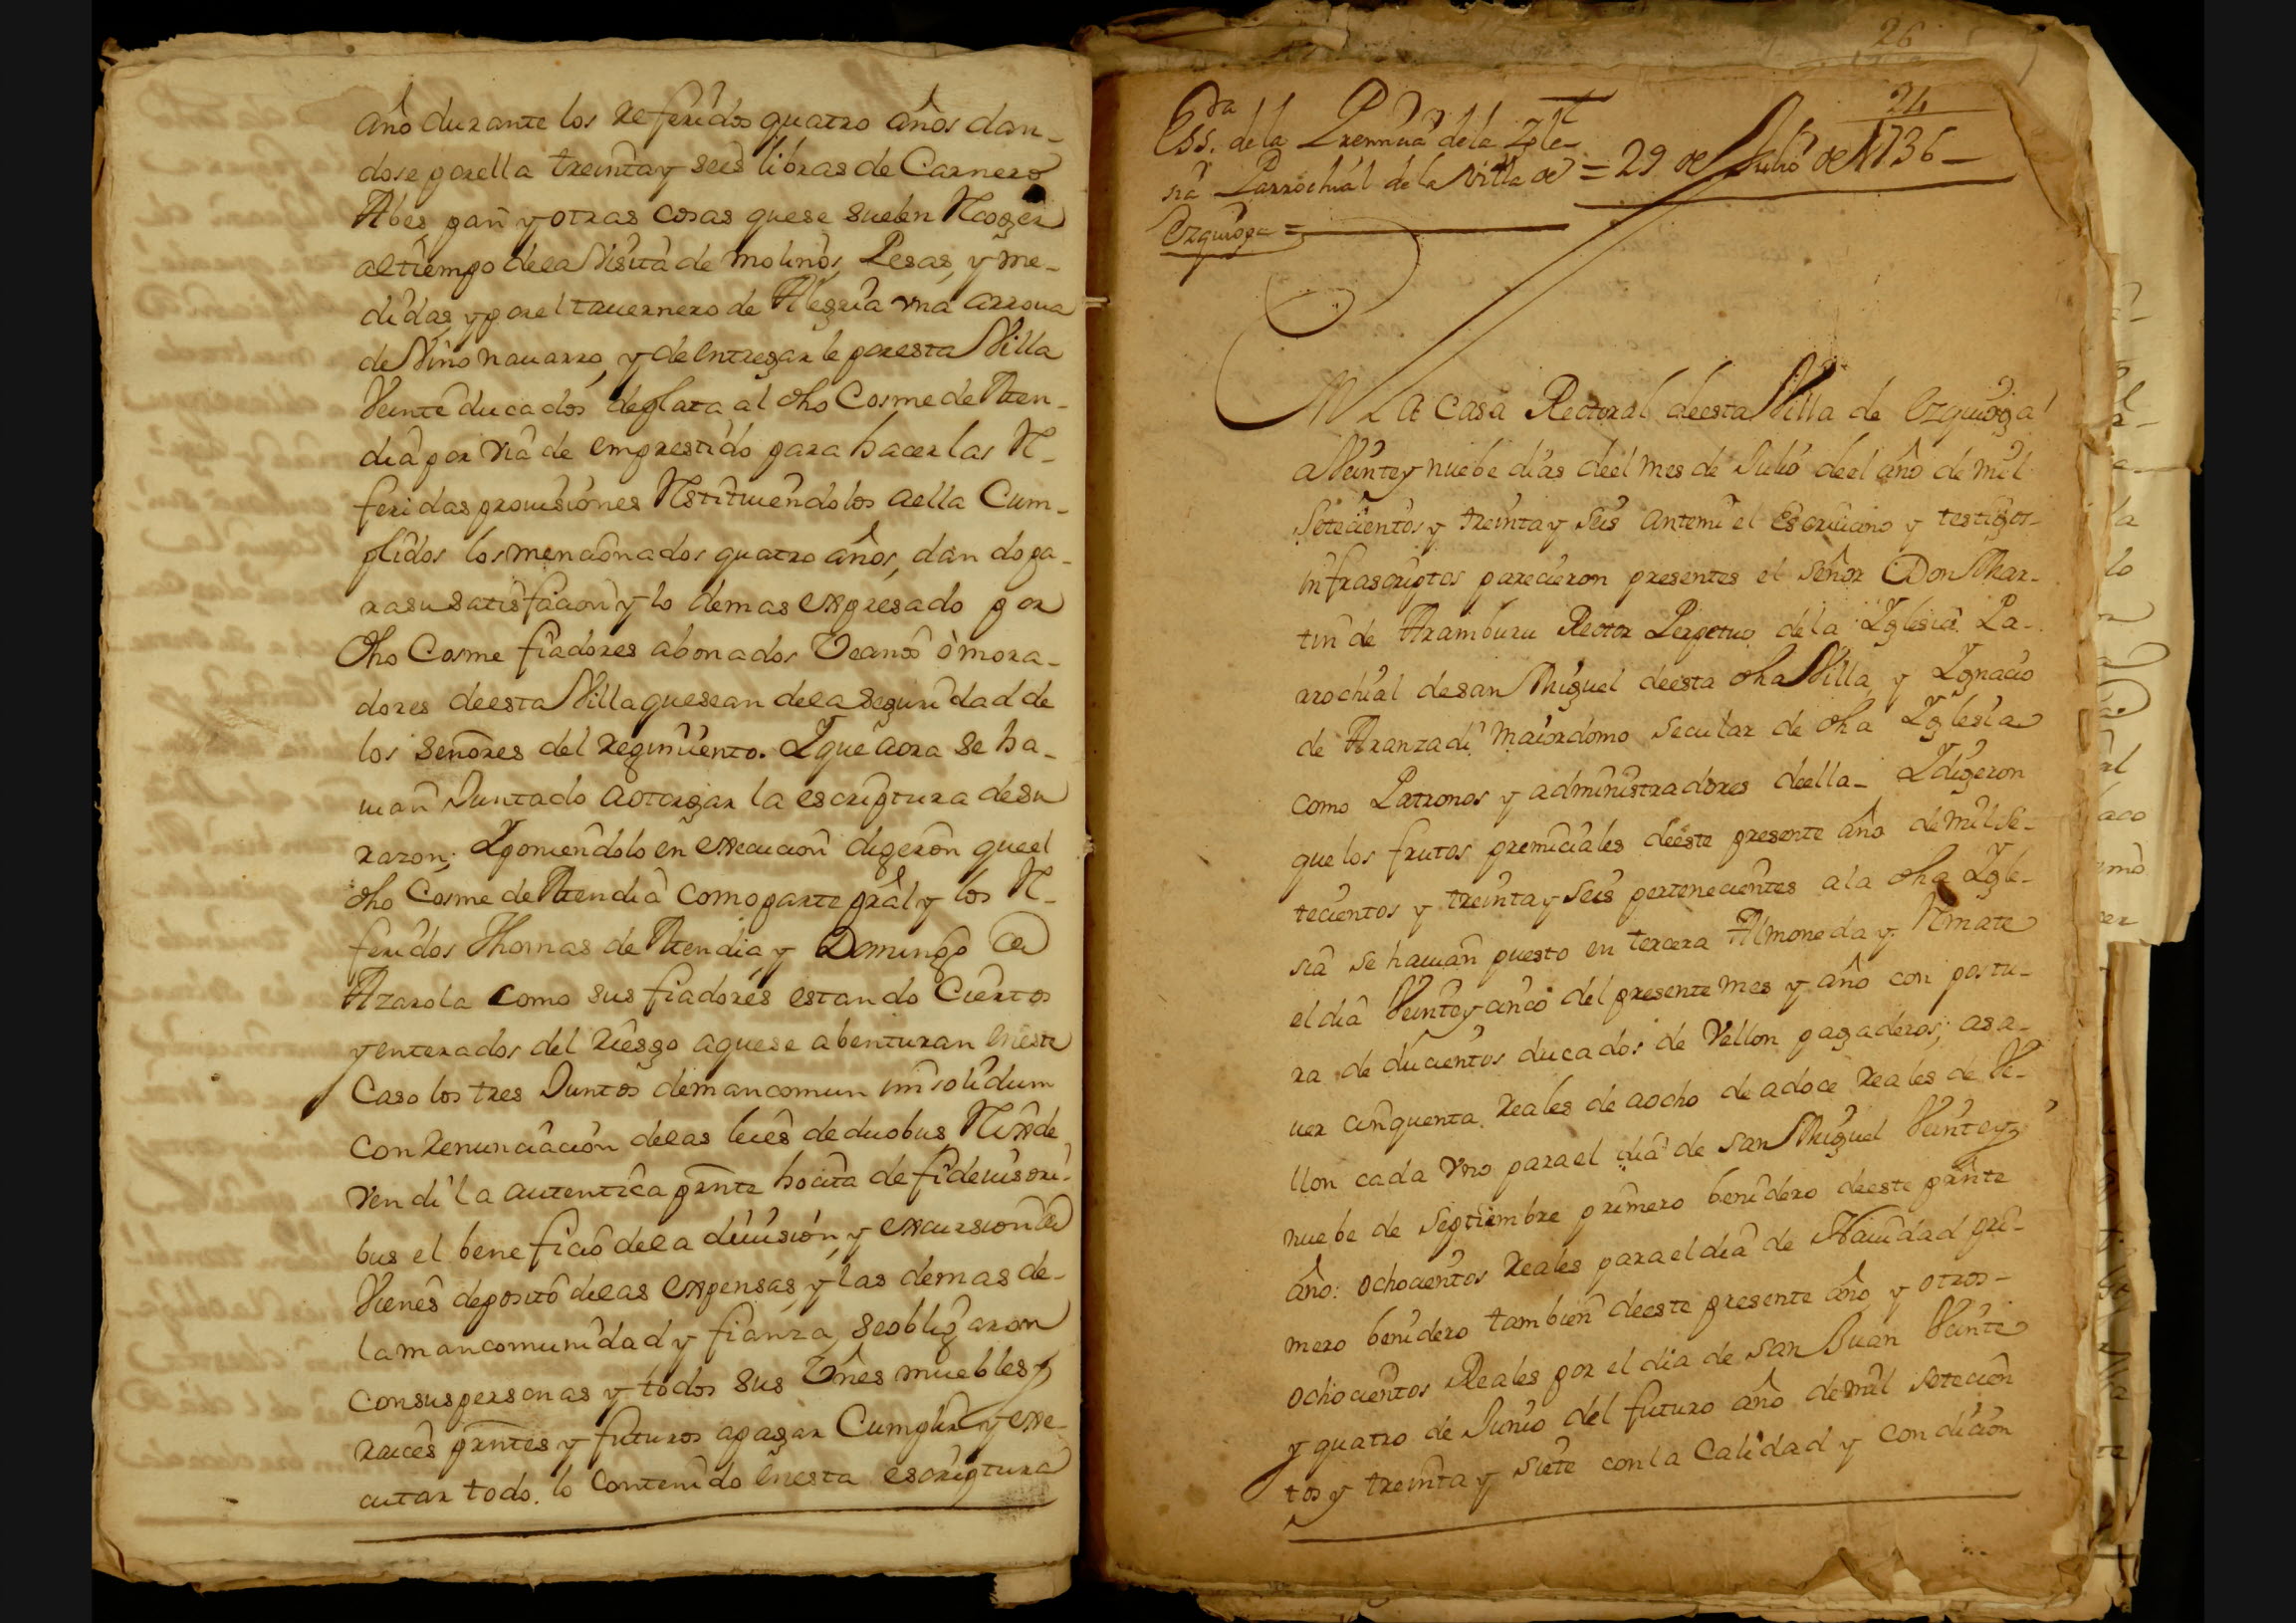 año durante los referidos quatro años dan-
dose por ella treinta y seis libras de Carnero
Abes, pan y otras cosas que se suelen Recoger
al tiempo de la Visita de molinos, Pesas, y me-
didas, y por el tauernero de Alegria vna arroua
de Vino nauarro, y de entregarle por esta Villa
Veinte ducados de plata al dho Cosme de Aten-
dia por via de emprestido para hacer las Re-
feridas prouisiones Restituiendolos a ella Cum-
plidos los mencionados quatro años, dando pa-
ra su satisfacion y lo demas expresado por
dho Cosme fiadores abonados Vecinos ò mora-
dores de esta Villa que sean de la seguridad de
los señores del regimiento. Y que aora se ha-
uian Juntado a otorgar la escriptura de su
razon; Y poniendolo en execucion digeron que el
dho Cosme de Atendia como parte prâl y los Re-
feridos Thomas de Atendia y Domingo de
Azarola como sus fiadores estando Ciertos
y enterados del riesgo a que se abenturan en este
Caso los tres Juntos de mancomun insolidum
con renunciacion de las leies de duobus Rex de
vendi la autentica prnte hocita de fideiusori-
bus el beneficio de la diuision, y excursion de
Vienes deposito de las expensas, y las demas de
la mancomunidad y fianza, se obligaron
con sus personas y todos sus Vnes muebles y
raices prntes y futuros a pagar Cumplir y exe-
cutar todo lo Contenido en esta escriptura
26
24
Essra. de la Premicia de la Igle-
sia Parrochial de la Villa de
Ezquioga =
= 29 de Julio de 1736 -
En La Casa Rectoral de esta Villa de Ezquioga
a Veinte y nuebe dias de el mes de Julio de el año de mil
Setecientos y treinta y Seis ante mi el Escriuano y testigos
infrascriptos parecieron presentes el señor Don Mar-
tin de Aramburu Rector Perpetuo de la Iglesia Pa-
rrochial de san Miguel de esta dha Villa, y Ygnacio
de Aranzadi Maiordomo Secular de dha Yglesia
como Patronos y administradores de ella- Y digeron
que los frutos premiciales de este presente año de mil se-
tecientos y treinta y seis pertenecientes a la dha Ygle-
sia se hauian puesto en tercera Almoneda y Remate
el dia Veinte y cinco del presente mes y año con postu-
ra de ducientos ducados de Vellon pagaderos; as a-
uer cinquenta reales de a ocho de a doce reales de Ve-
llon cada vno para el dia de san Miguel Veinte y
nuebe de Septiembre primero benidero de este prnte
año: ochocientos reales para el dia de Nauidad pri-
mero benidero tambien de este presente año, y otros-
ochocientos Reales por el dia de san Juan Veinte
y quatro de Junio del futuro año de mil setecien
tos y treinta y siete con la Calidad y condicion